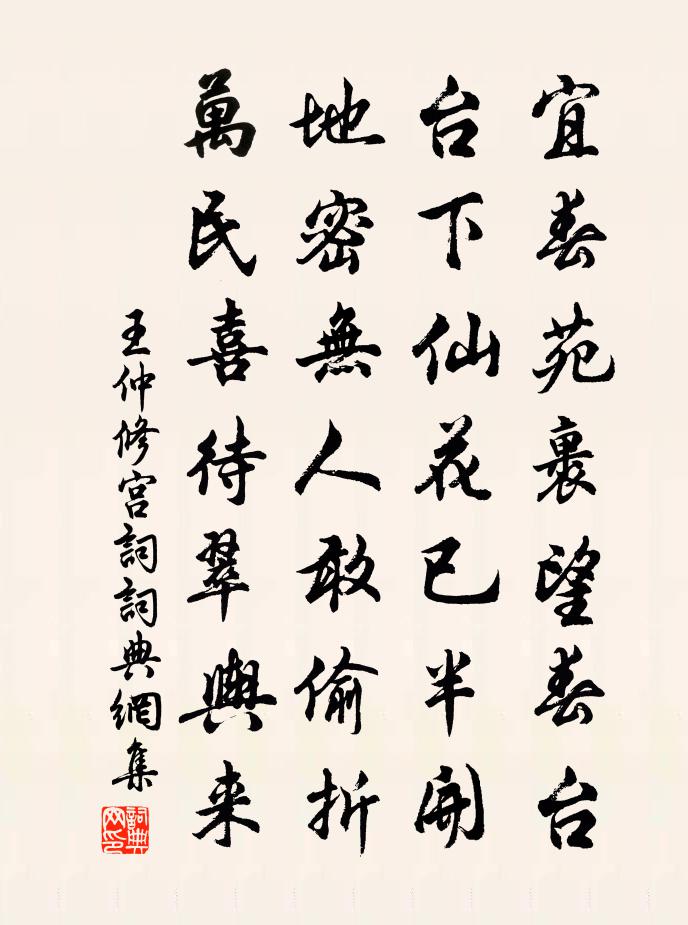 宜春苑裏望春台
台下仙花已半開
地密無人敢偷折
萬民喜待翠輿来
王仲修宮詞詞典網集
詞典网印